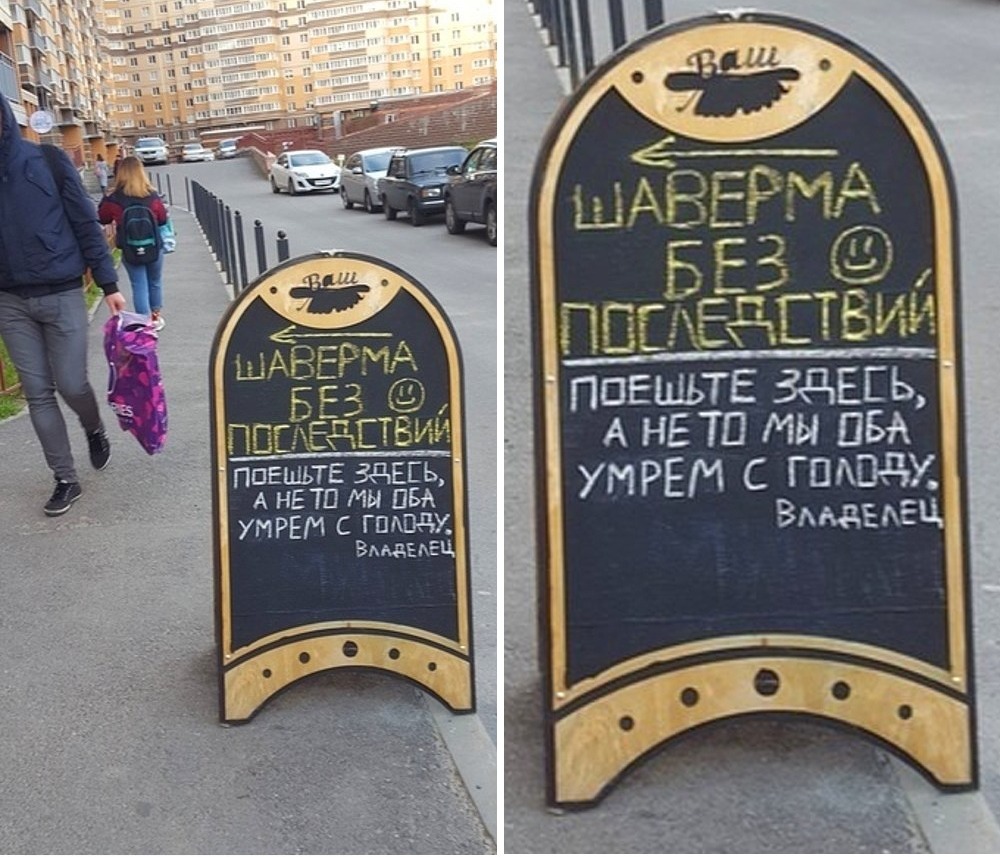 Ваш
ШАВЕРМА
БЕЗ
ПОСЛЕДСТВИЙ
ПОЕШЬТЕ ЗДЕСЬ,
А НЕ ТО МЫ ОБА
УМРЕМ С ГОЛОДУ.
ВЛАДЕЛЕЦ
Ваш
ШАВЕРМА
БЕЗ
ПОСЛЕДСТВИЙ
ПОЕШЬТЕ ЗДЕСЬ,
А НЕ ТО МЫ ОБА
УМРЕМ С ГОЛОДУ.
ВЛАДЕЛЕЦ